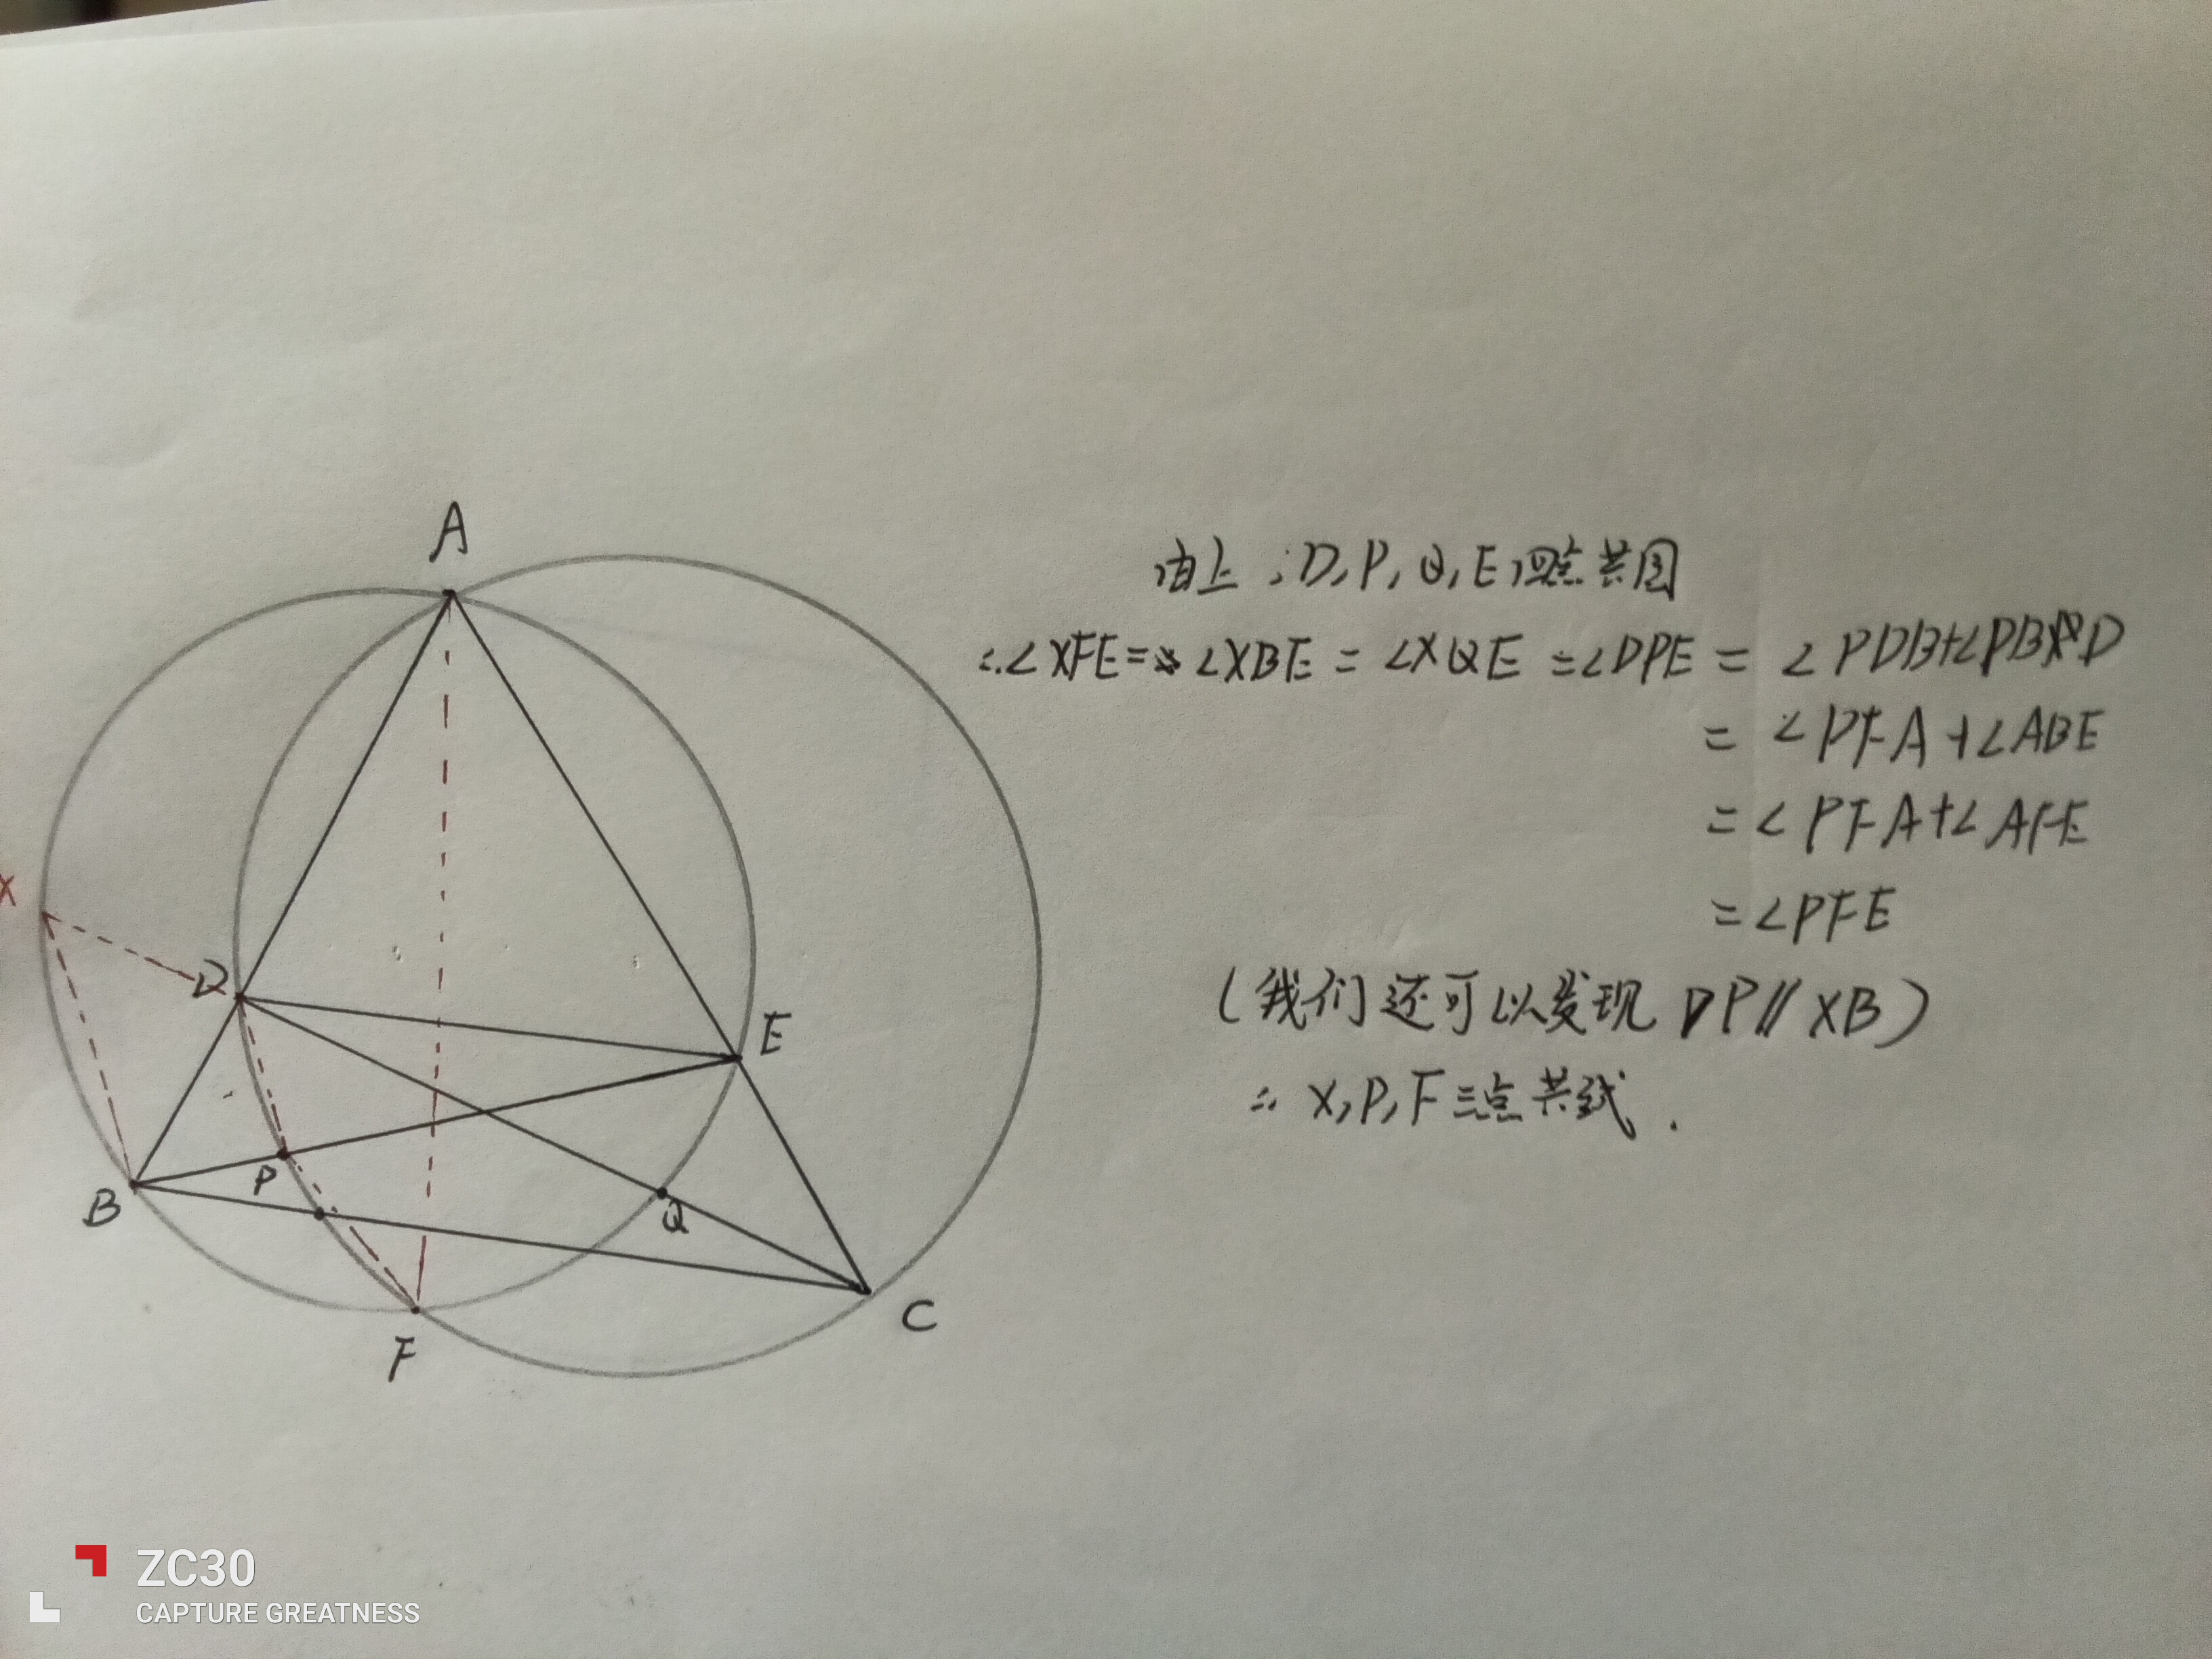 A
由上:D,P,Q,E四点共圆
∴∠XFE=∠XBE=∠XQE=∠DPE=∠PDB+∠PBD
=∠PFA+∠ABE
=∠PFA+∠AFE
=∠PFE
(我们还可以发现DP∥XB)
∴X,P,F三点共线.
X
D
E
P
B
Q
C
F
ZC30
CAPTURE GREATNESS